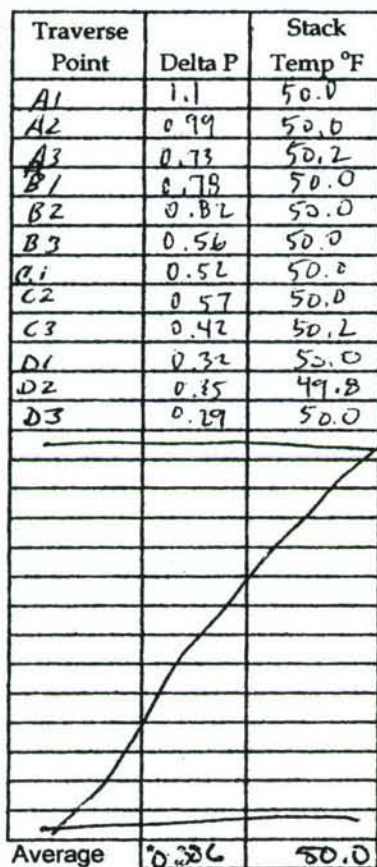 Traverse Point Delta P Stack Temp °F
A1 1.1 50.0
A2 0.99 50.0
A3 0.73 50.2
B1 0.78 50.0
B2 0.82 50.0
B3 0.56 50.0
C1 0.52 50.0
C2 0.57 50.0
C3 0.42 50.2
D1 0.32 50.0
D2 0.35 49.8
D3 0.29 50.0
Average 50.0